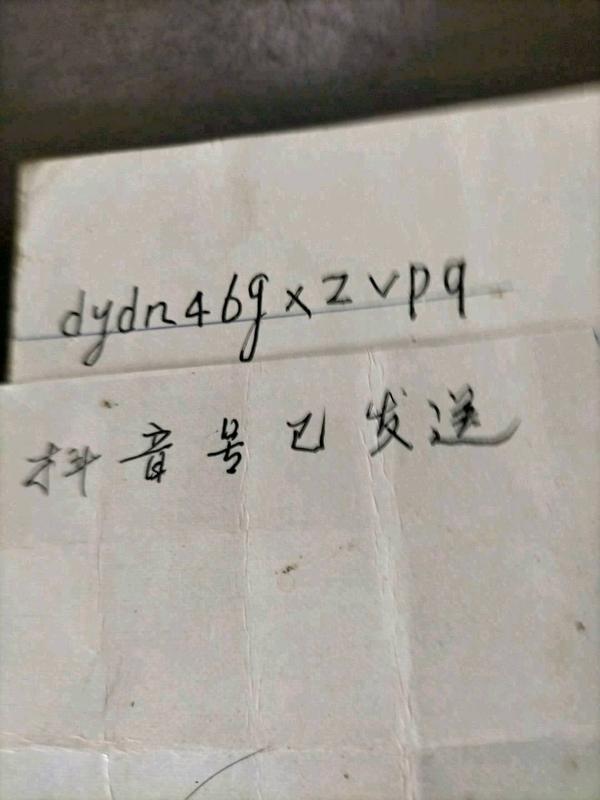 dydn46gxzvpq
抖音号已发送